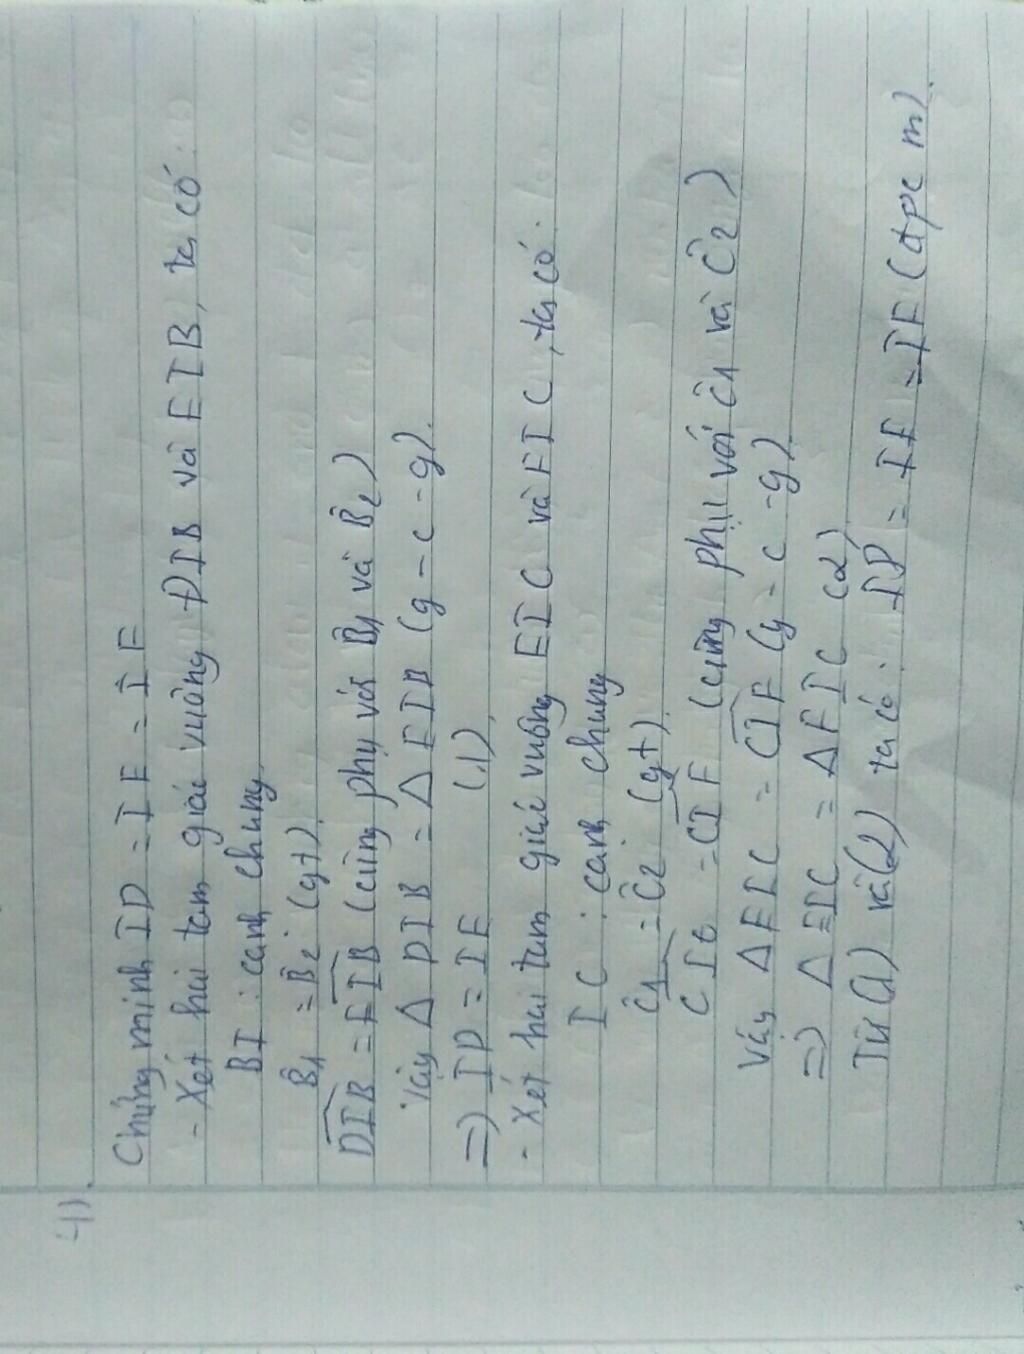 41).
Chứng minh ID = IE = IF
- Xét hai tam giác vuông DIB và EIB, ta có:
BI : cạnh chung.
B̂1 = B̂2 (gt).
DIB = EIB (cùng phụ với B̂1 và B̂2)
Vậy Δ DIB = Δ EIB (g - c - g).
=> ID = IE (1)
- Xét hai tam giác vuông EIC và FIC, ta có:
IC : cạnh chung
Ĉ1 = Ĉ2 (gt).
CIE = CIF (cùng phụ với Ĉ1 và Ĉ2)
Vậy Δ EIC = CIF (g - c - g).
=> Δ EIC = Δ FIC (2)
Từ (1) và (2) ta có: ID = IE = IF (đpcm).